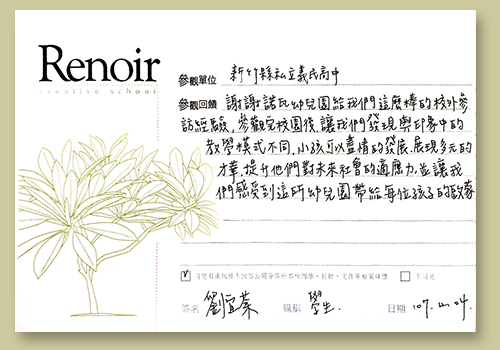 Renoir
creative school
參觀單位 新竹縣私立義民高中
參觀回饋 謝謝諾瓦幼兒園給我們這麼棒的校外參
訪經驗，參觀完校園後，讓我們發現與印象中的
教學模式不同，小孩可以盡情的發展，展現多元的
才華，提升他們對未來社會的適應力，並讓我
們感受到這所幼兒園帶給每位孩子的
簽名 劉宜蓁 職稱 學生. 日期 107.